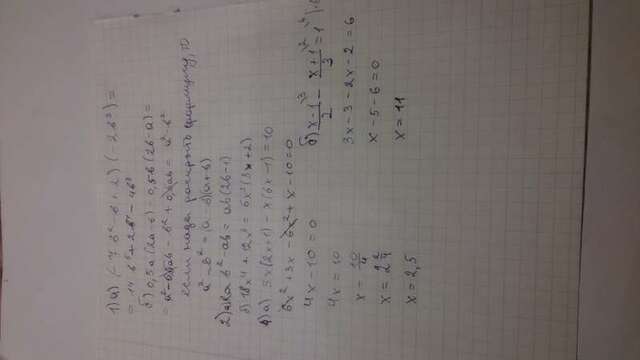 1) а) (-7b² - b + 2)(-2b³) =
= 14b⁵ + 2b⁴ - 4b³
б) 0,5a(2a-b) - 0,5b(2b-a) =
= a² - 0,5ab - b² + 0,5ab = a² - b²
если надо раскрыть формулу, то
a² - b² = (a-b)(a+b)
2) b² - ab = ab(2b-1)
б) 18x⁴ + 12x³ = 6x³(3x+2)
4) а) 3x(2x+1) - x(6x-1) = 10
6x² + 3x - 6x² + x - 10 = 0
4x - 10 = 0
4x = 10
x - 10/4
x = 2 2/4
x = 2,5
б) x-1/2 \3 - x+1/3 \2 = 1 \6
3x - 3 - 2x - 2 = 6
x - 5 - 6 = 0
x = 11